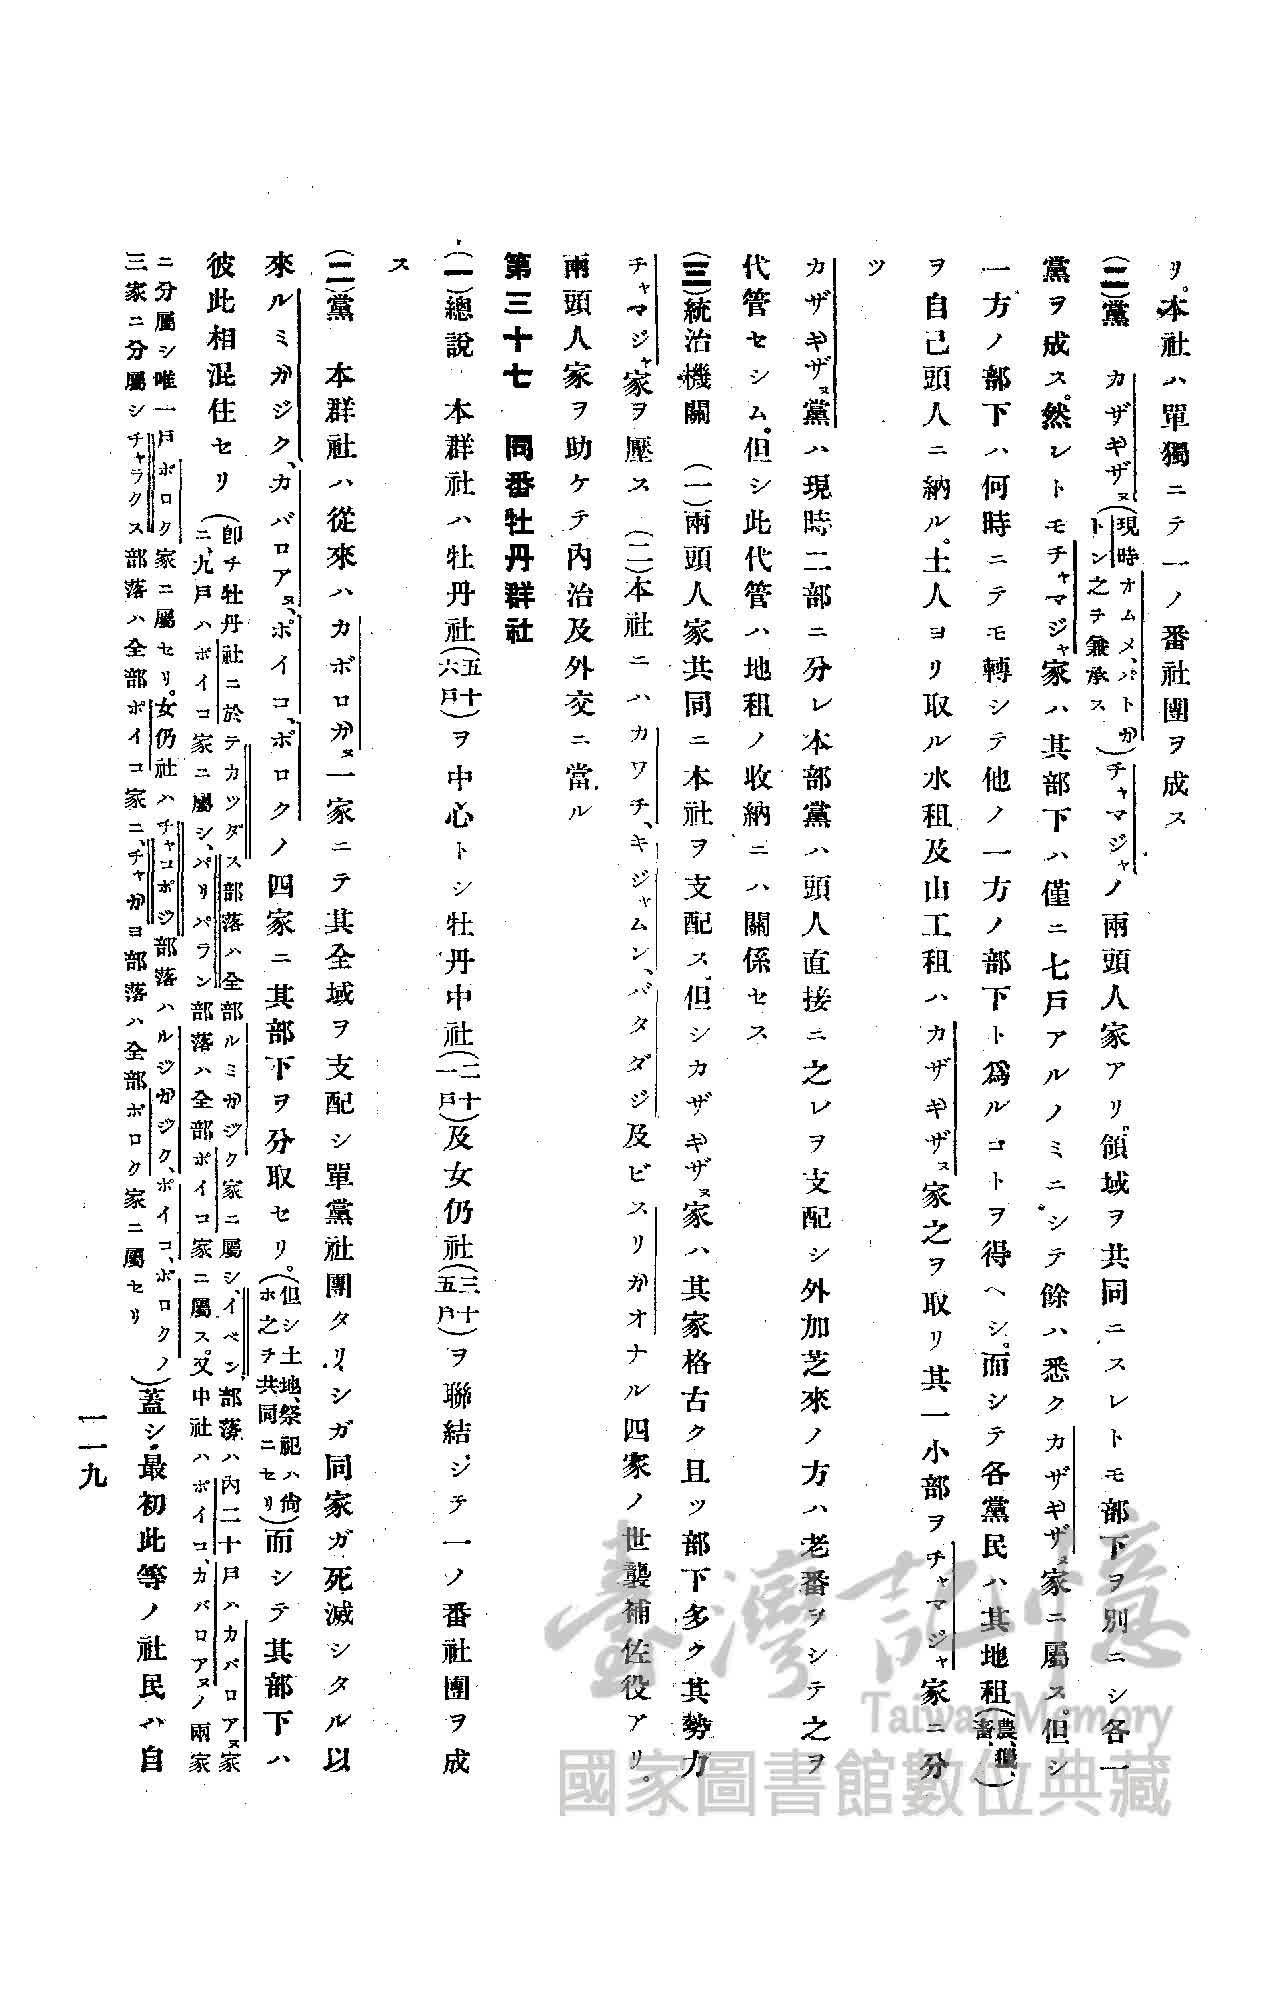 リ。本社ハ單獨ニテ一ノ番社團ヲ成ス
(二)黨　カザギザヌ(現時オムメ、バトガトン之ヲ兼承ス)チャマジャノ兩頭人家アリ。領域ヲ共同ニスレトモ部下ヲ別ニシ各一
黨ヲ成ス。然レトモチャマジャ家ハ其部下ハ僅ニ七戸アルノミニシテ餘ハ悉クカザギザヌ家ニ屬ス。但シ
一方ノ部下ハ何時ニテモ轉シテ他ノ一方ノ部下ト爲ルコトヲ得ヘシ。而シテ各黨民ハ其地租(農、獵、畜、)
ヲ自己頭人ニ納ル。土人ヨリ取ル水租及山工租ハカザギザヌ家之ヲ取リ其一小部ヲチャマジャ家ニ分
ツ
カザギザヌ黨ハ現時二部ニ分レ本部黨ハ頭人直接ニ之レヲ支配シ外加芝來ノ方ハ老番ヲシテ之ヲ
代管セシム。但シ此代管ハ地租ノ收納ニハ關係セス
(三)統治機關　(一)兩頭人家共同ニ本社ヲ支配ス。但シカザギザヌ家ハ其家格古ク且ツ部下多ク其勢力
チャマジャ家ヲ壓ス(二)本社ニハカワチ、キジャムン、バタダジ及ビスリガオナル四家ノ世襲補佐役アリ。
兩頭人家ヲ助ケテ內治及外交ニ當ル
第三十七　同番牡丹群社
(一)總說　本群社ハ牡丹社(五十六戸)ヲ中心トシ牡丹中社(二十一戸)及女仍社(三十五戸)ヲ聯結シテ一ノ番社團ヲ成
ス
(二)黨　本群社ハ從來ハカボロガヌ一家ニテ其全域ヲ支配シ單黨社團タリシガ同家ガ死滅シタル以
來ルミガジク、カバロアヌ、ポイコ、ボロクノ四家ニ其部下ヲ分取セリ。(但シ土地、祭祀ハ尙ホ之ヲ共同ニセリ)而シテ其部下ハ
彼此相混住セリ(卽チ牡丹社ニ於テカツダス部落ハ全部ルミガジク家ニ屬シ、イベン部落ハ內二十戸ハカバロアヌ家
ニ、九戸ハポイコ家ニ屬シ、パリパラン部落ハ全部ポイコ家ニ屬ス。又中社ハポイコ、カバロアヌノ兩家
ニ分屬シ唯一戸ボロク家ニ屬セリ。女仍社ハチャコポジ部落ハルジガジク、ポイコ、ボロクノ
三家ニ分屬シチャラクス部落ハ全部ポイコ家ニ、チャガヨ部落ハ全部ボロク家ニ屬セリ)蓋シ最初此等ノ社民ハ自
一一九
臺灣記憶
Taiwan Memory
國家圖書館數位典藏